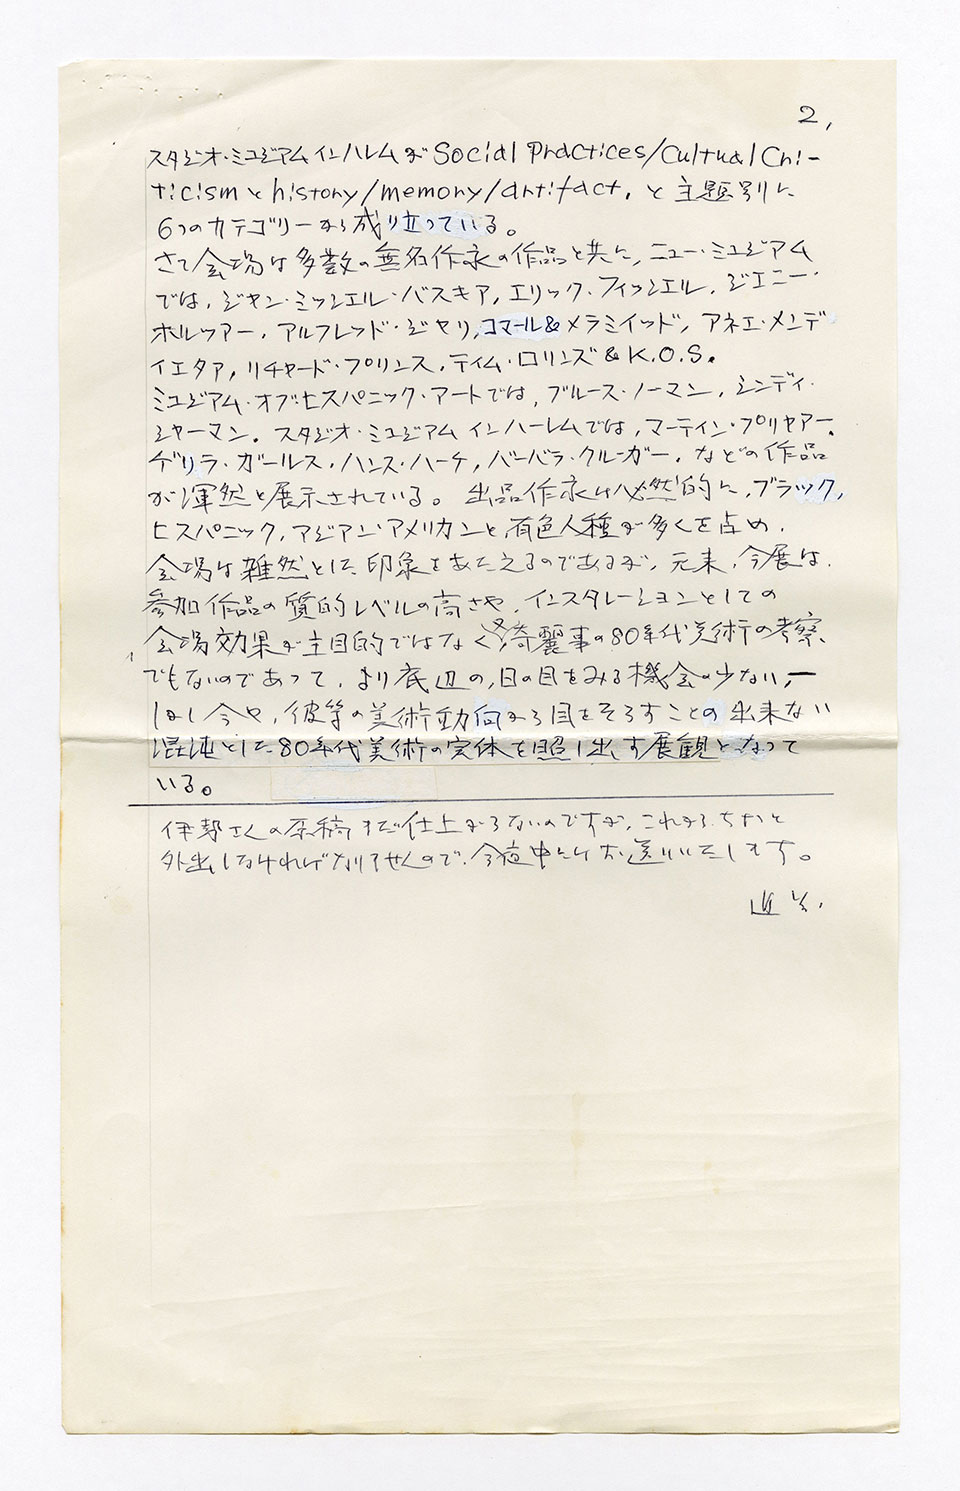 2,
スタジオ・ミュジアム インハレムが Social Practices/Cultual Cri-
ticismと history/memory/artifact. と主題別に
6つのカテゴリーから成り立っている。
さて会場は多数の無名作家の作品と共に, ニュー・ミュジアム
では, ジャン・ミッシェル・バスキア, エリック・フィッシェル, ジェニー・
ホルツアー, アルフレッド・ジャり, コマール&メラミイッド, アネエ・メンデ
イエタア, リチャード・プリンス, ティム・ロリンズ & K.O.S.
ミュジアム・オブ・ヒスパニック・アートでは, ブルース・ノーマン, シンディ・
シャーマン. スタジオ・ミュジアム インハーレムでは, マーティン・プリヤアー,
ゲリラ・ガールス・ハンス・ハーケ, バーバラ・クルーガー, などの作品
が渾然と展示されている。出品作家は必然的に, ブラック,
ヒスパニック, アジアン・アメリカンと, 有色人種が多くを占め,
会場は雑然とした印象をあたえるのであるが, 元来, 今展は,
参加作品の質的レベルの高さや, インスタレーションとしての
会場効果が主目的ではなく, 又, 綺麗事の80年代美術の考察,
でもないのであって, より底辺の, 日の目をみる機会の少ない, ー
しかし今や, 彼等の美術動向から目をそらすことの出来ない
混沌とした80年代美術の実体を照し出す展観となって
いる。
伊勢さんの原稿まだ仕上がらないのですが, これからちょっと
外出しなければなりませんので, 今夜中にはお送りいたします。